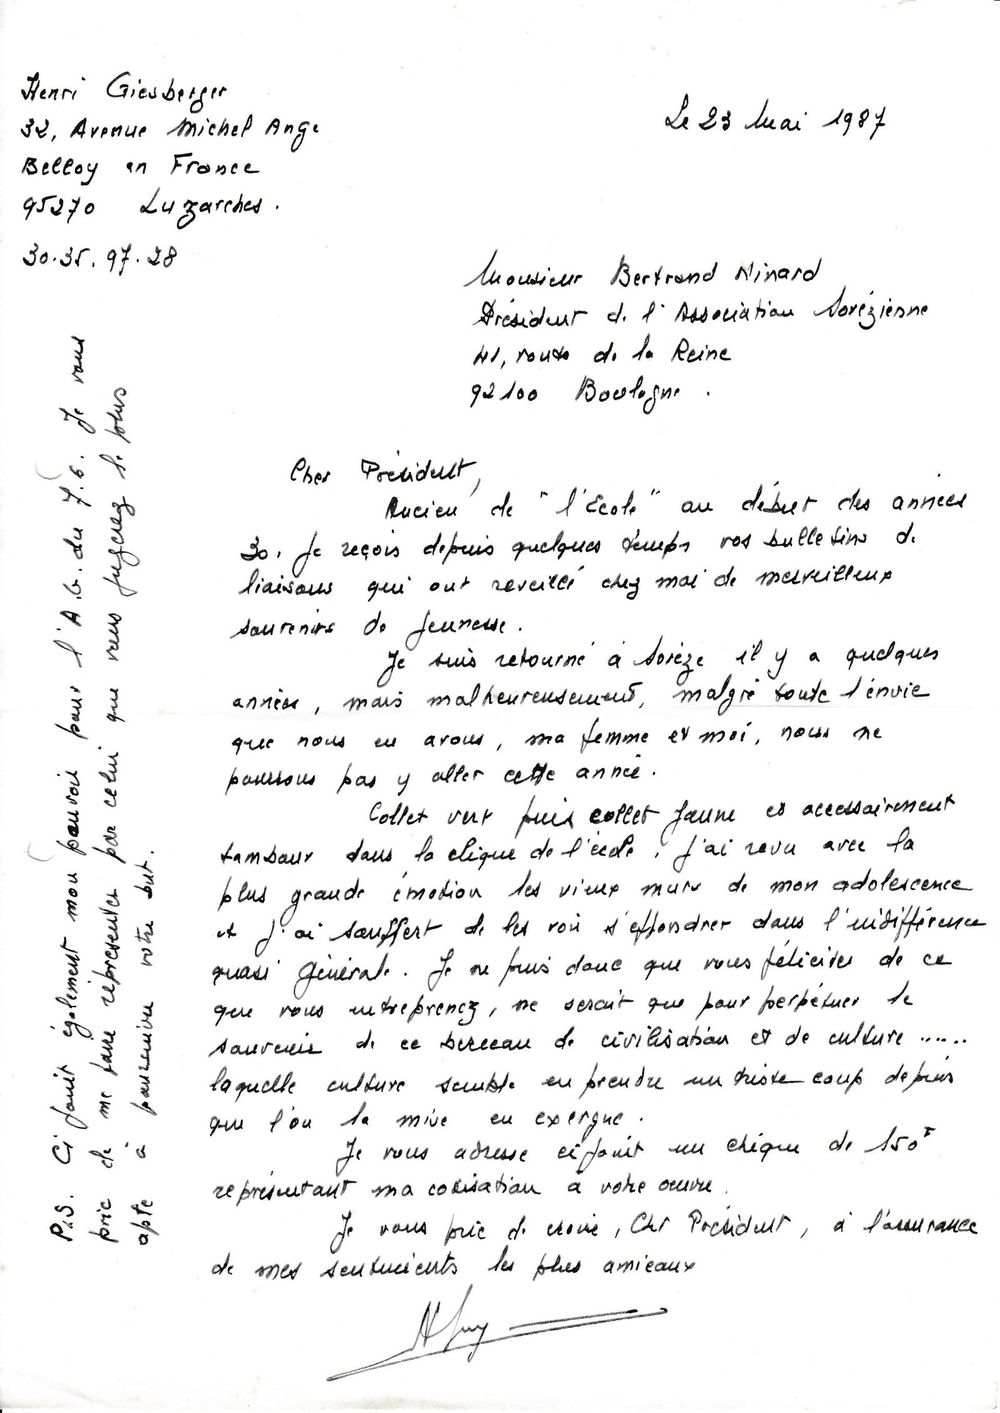 Henri Giesberger
32, Avenue Michel Ange
Belloy en France
95270 Luzarches.
30.35.97.28
Le 23 Mai 1987
Monsieur Bertrand Ninard
Président de l'Association Sorézienne
41, route de la Reine
92100 Boulogne.
Cher Président,
Ancien de "l'Ecole" au début des années
30. Je reçois depuis quelques temps vos bulletins de
liaisons qui ont reveillé chez moi de merveilleux
souvenirs de jeunesse.
Je suis retourné à Sorèze il y a quelques
années, mais malheureusement, malgré toute l'envie
que nous en avons, ma femme et moi, nous ne
pouvons pas y aller cette année.
Collet vert puis collet jaune et accessairement
tambour dans la clique de l'école, j'ai revu avec la
plus grande émotion les vieux murs de mon adolescence
et j'ai souffert de les voir s'effondrer dans l'indifférence
quasi générale. Je ne puis donc que vous féliciter de ce
que vous entreprenez, ne serait que pour perpétuer le
souvenir de ce berceau de civilisation et de culture ......
laquelle culture semble en prendre un triste coup depuis
que l'on la mise en exergue.
Je vous adresse ci joint un chèque de 150F
représentant ma cotisation à votre œuvre.
Je vous prie de croire, Cher Président, à l'assurance
de mes sentiments les plus amicaux
P.S. Ci joint également mon pouvoir pour l'A.G. du 7.6. Je vous
prie de me faire représenter par celui que vous jugerez le plus
apte à poursuivre votre but.